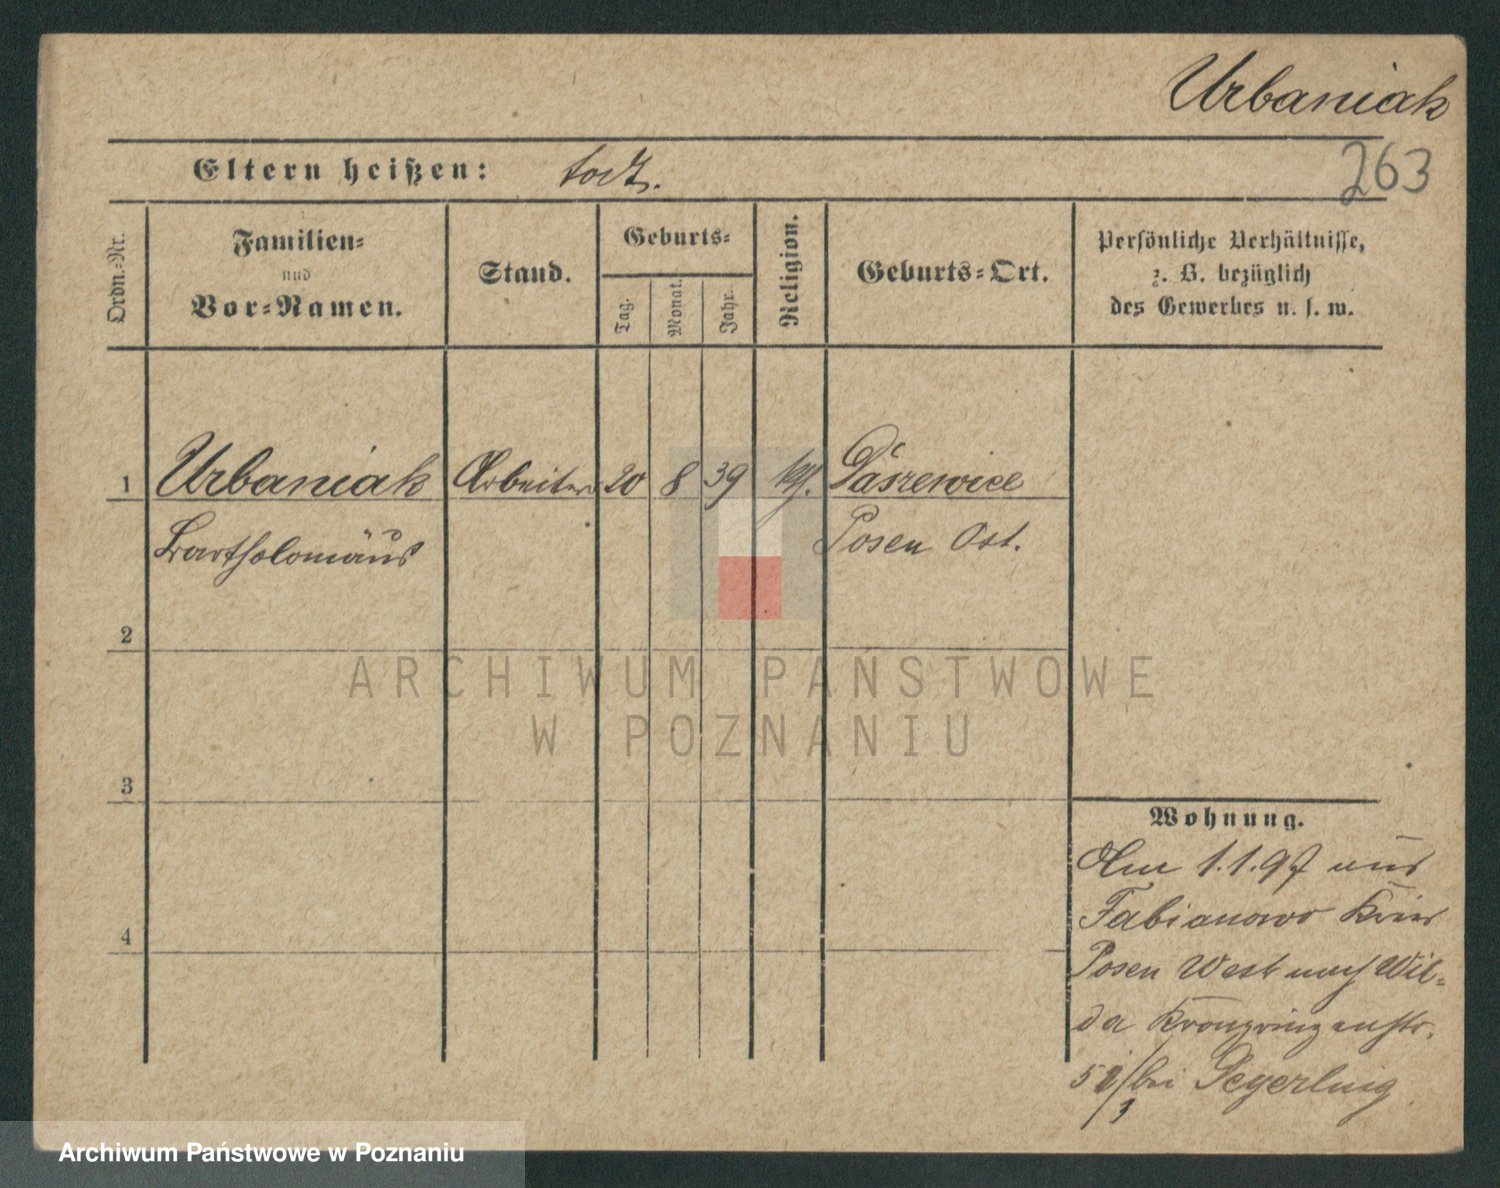 Urbaniak
263
Eltern heißen: todt.
Ordn.-Nr.
Familien-
und
Vor-Namen.
Stand.
Geburts-
Tag.
Monat.
Jahr.
Religion.
Geburts-Ort.
Persönliche Verhältnisse,
z. B. bezüglich
des Gewerbes u. s. w.
1 Urbaniak Arbeiter 20 8 39 Pászewice
Bartholomäus Posen Ost.
2
3
4
Wohnung.
Am 1.1.97 aus
Fabianowo Kreis
Posen West nach Wil-
da Kronprinzenstr.
bei
ARCHIWUM PAŃSTWOWE
W POZNANIU
Archiwum Państwowe w Poznaniu